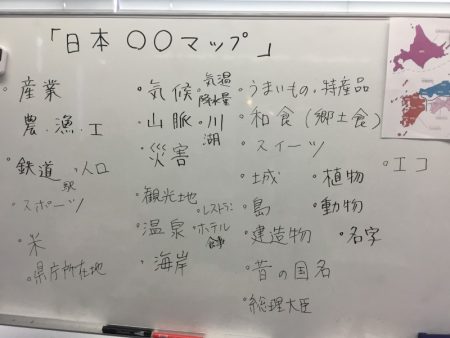 「日本 〇〇マップ」
・産業
農・漁・工
・鉄道 駅
・人口
・スポーツ
・米
・県庁所在地
・気候
・気温
降水量
・山脈
・川
湖
・災害
・観光地
・レストラン
・温泉
・ホテル
・海岸
・うまいもの・特産品
・和食(郷土食)
・スイーツ
・城
・植物
・島
・動物
・建造物
・名字
・昔の国名
・総理大臣
・エコ